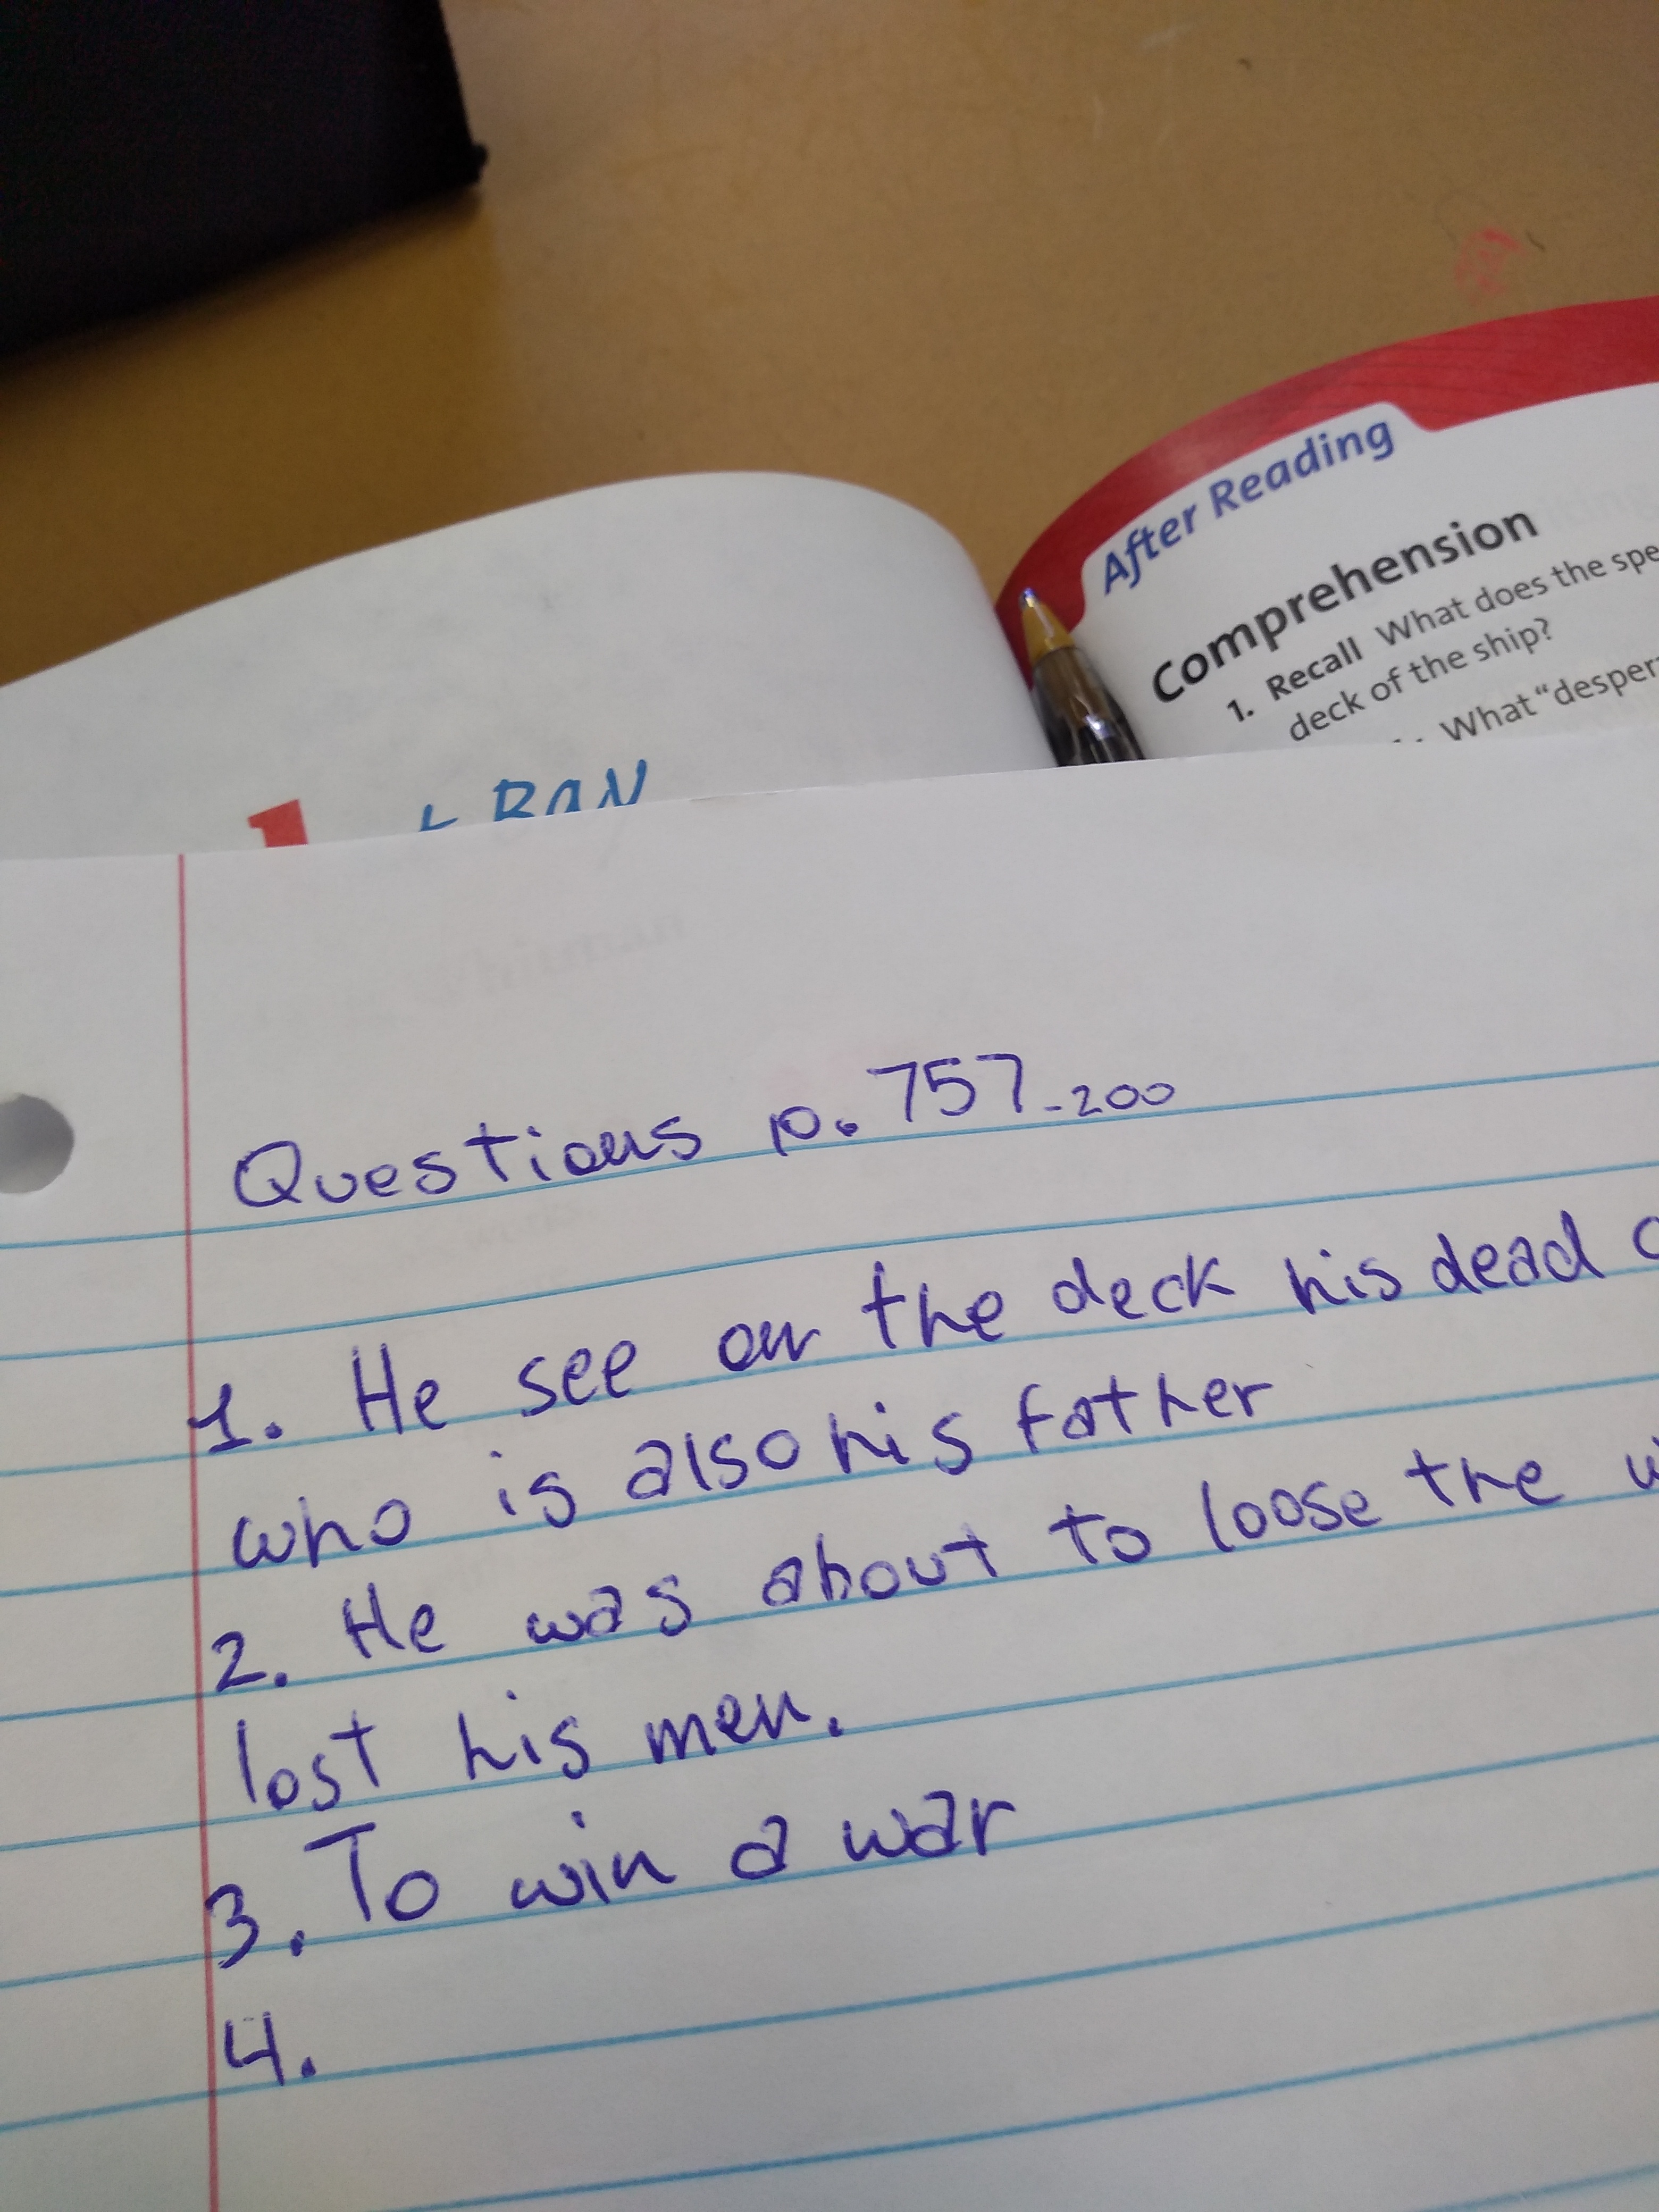 After Reading
Comprehension
1. Recall What does the spe
deck of the ship?
What "desper
Questions p. 757-200
1. He see on the deck his dead
who is also his father
2. He was about to loose the
lost his men.
3. To win a war
4.